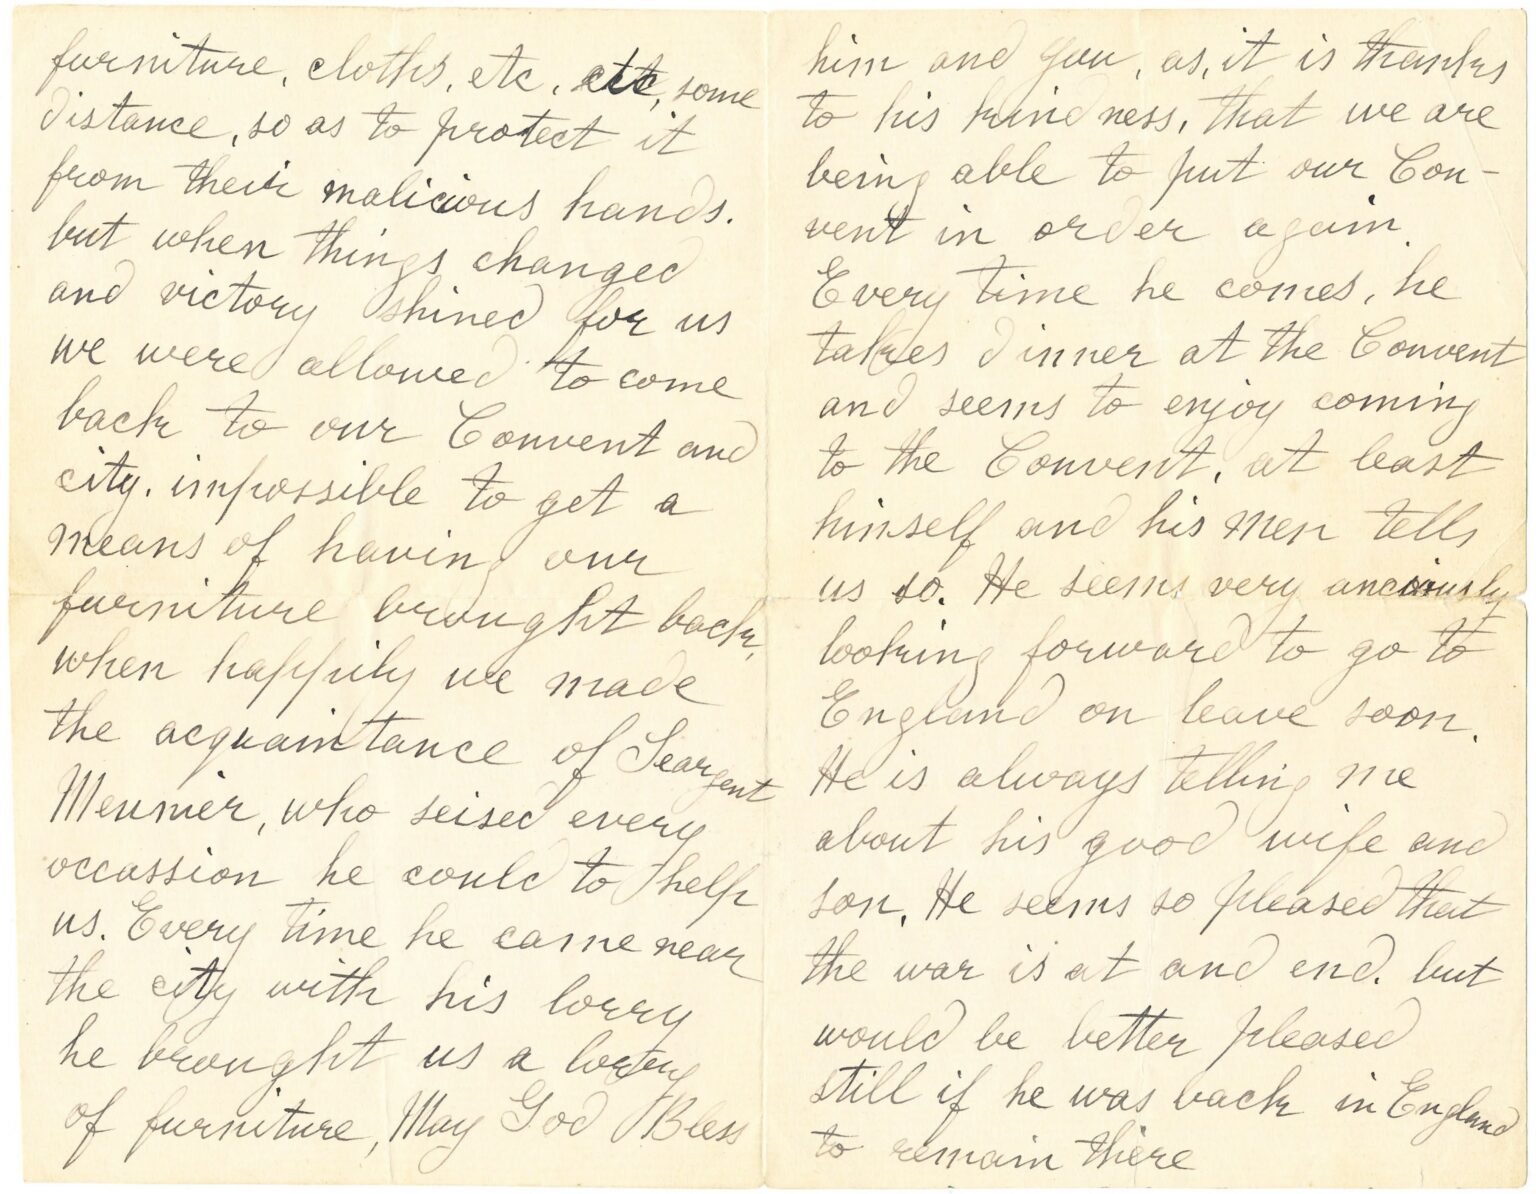 furniture, cloths, etc, etc, some
distance, so as to protect it
from their malicious hands.
but when things changed
and victory shined for us
we were allowed to come
back to our Convent and
city. impossible to get a
means of having our
furniture brought back,
when happily we made
the acquaintance of Seargent
Meunier, who seised every
occassion he could to help
us. Every time he came near
the city with his lorry
he brought us a lorry
of furniture, May God Bless
him and you, as, it is thanks
to his kindness, that we are
being able to put our Con-
vent in order again.
Every time he comes, he
takes dinner at the Convent
and seems to enjoy coming
to the Convent, at least
himself and his men tells
us so. He seems very anciously
looking forward to go to
England on leave soon.
He is always telling me
about his good wife and
son. He seems so pleased that
the war is at and end. but
would be better pleased
still if he was back in England
to remain there